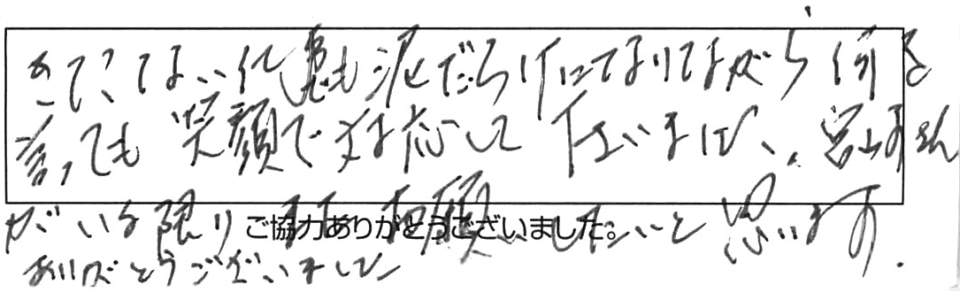 きてくてない化粧も泥だらけになりながら何を
言っても笑顔で対応して下さいました、宮山さん
がいる限りまたお願いしたいと思います.
ご協力ありがとうございました。
ありがとうございました